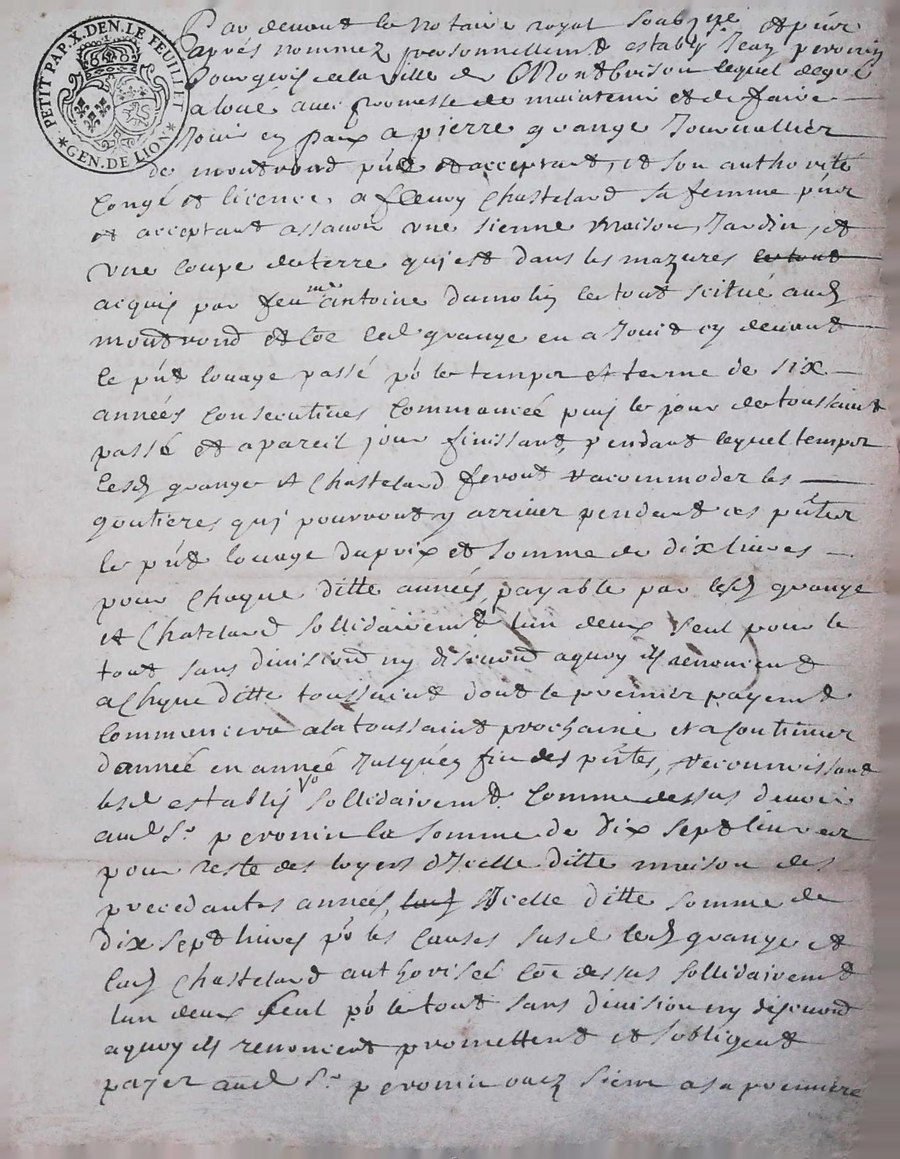 PETIT PAP. X. DEN. LE FEUILLET
* GEN. DE LION *
Par devant le notaire royal soubzne et pñts
apres nommez personnellement estably Jean peronin
bourgeois de la ville de Montbrison lequel de gré
a loué avec promesse de maintenir et de faire
Jouir en paix a pierre grange Journallier
de montrond pñt et acceptant, et son authorité
congé et licence, a fleury Chasteland sa femme pñte
et acceptant assavoir une sienne maison, Jardin, et
une coupe de terre qui est dans les mazures le tout
acquis par feu me antoine dumolin le tout scitué aud
montrond et cõe led grange en a Jouit cy devant
le pñt louage passé po le temps et terme de six
années consecutives commancée puis le jour de toussaint
passé et a pareil jour finissant, pendant lequel temps
lesd grange et Chasteland feront racommoder les
goutieres qui pourront y arriver pendant ces pñtes
le pñt louage du prix et somme de dix livres
pour chaque ditte année, payable par lesd grange
et Chateland sollidairement lun deux seul pour le
tout sans division ny discution a quoy ils renoncent
a chaque ditte toussaint dont le premier payement
commencera a la toussaint prochaine et a continuer
dannée en année Jusques fin des pñtes, reconnoissant
lesd establis Vo sollidairement comme dessus devoir
aud Sr peronin la somme de dix sept livres
pour reste des loyers d'Icelle ditte maison des
precedantes années, Icelle ditte somme de
dix sept livres po les causes susd lesd grange et
Chasteland authorisée cõe dessus sollidairement
lun deux seul po le tout sans division ny discution
a quoy ils renoncent promettent et sobligent
payer aud Sr peronin ou es siens a sa premiere